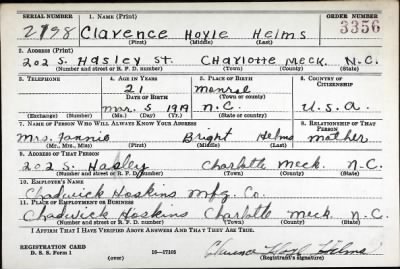 SERIAL NUMBER 1. NAME (Print) ORDER NUMBER
2798 Clarence Hoyle Helms 3356
(First) (Middle) (Last)
2. ADDRESS (Print)
202 S. Hasley St. Charlotte Meck. N.C.
(Number and street or R. F. D. number) (Town) (County) (State)
3. TELEPHONE 4. AGE IN YEARS 5. PLACE OF BIRTH 6. COUNTRY OF CITIZENSHIP
21 Monroe
DATE OF BIRTH (Town or county)
Mar. 5 1919 N.C. U.S.A.
(Exchange) (Number) (Mo.) (Day) (Yr.) (State or country)
7. NAME OF PERSON WHO WILL ALWAYS KNOW YOUR ADDRESS 8. RELATIONSHIP OF THAT PERSON
Mrs. Fannie Bright Helms Mother
(Mr., Mrs., Miss) (First) (Middle) (Last)
9. ADDRESS OF THAT PERSON
202 S. Hasley Charlotte Meck. N.C.
(Number and street or R. F. D. number) (Town) (County) (State)
10. EMPLOYER'S NAME
Chadwick Hoskins Mfg. Co.
11. PLACE OF EMPLOYMENT OR BUSINESS
Chadwick Hoskins Charlotte Meck. N.C.
(Number and street or R. F. D. number) (Town) (County) (State)
I AFFIRM THAT I HAVE VERIFIED ABOVE ANSWERS AND THAT THEY ARE TRUE.
REGISTRATION CARD
D. S. S. Form 1 (over) 16—17105 Clarence Hoyle Helms
(Registrant's signature)